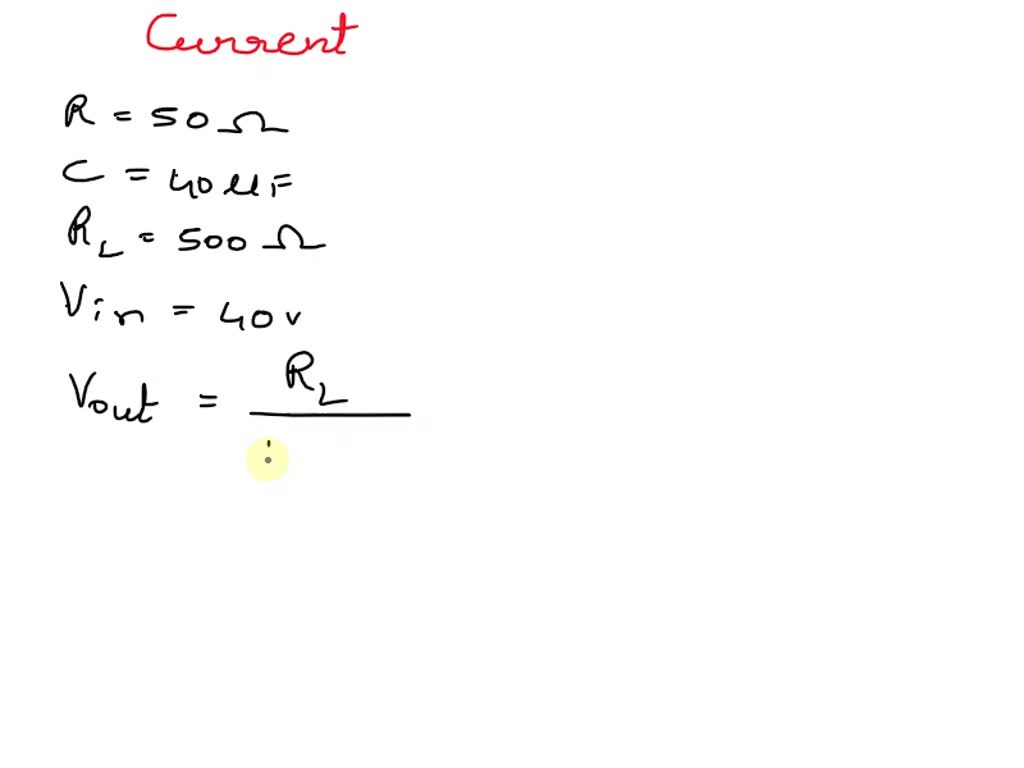 Current
R = 50 Ω
C = 40 μF
R_L = 500 Ω
Vin = 40 v
Vout = R_L